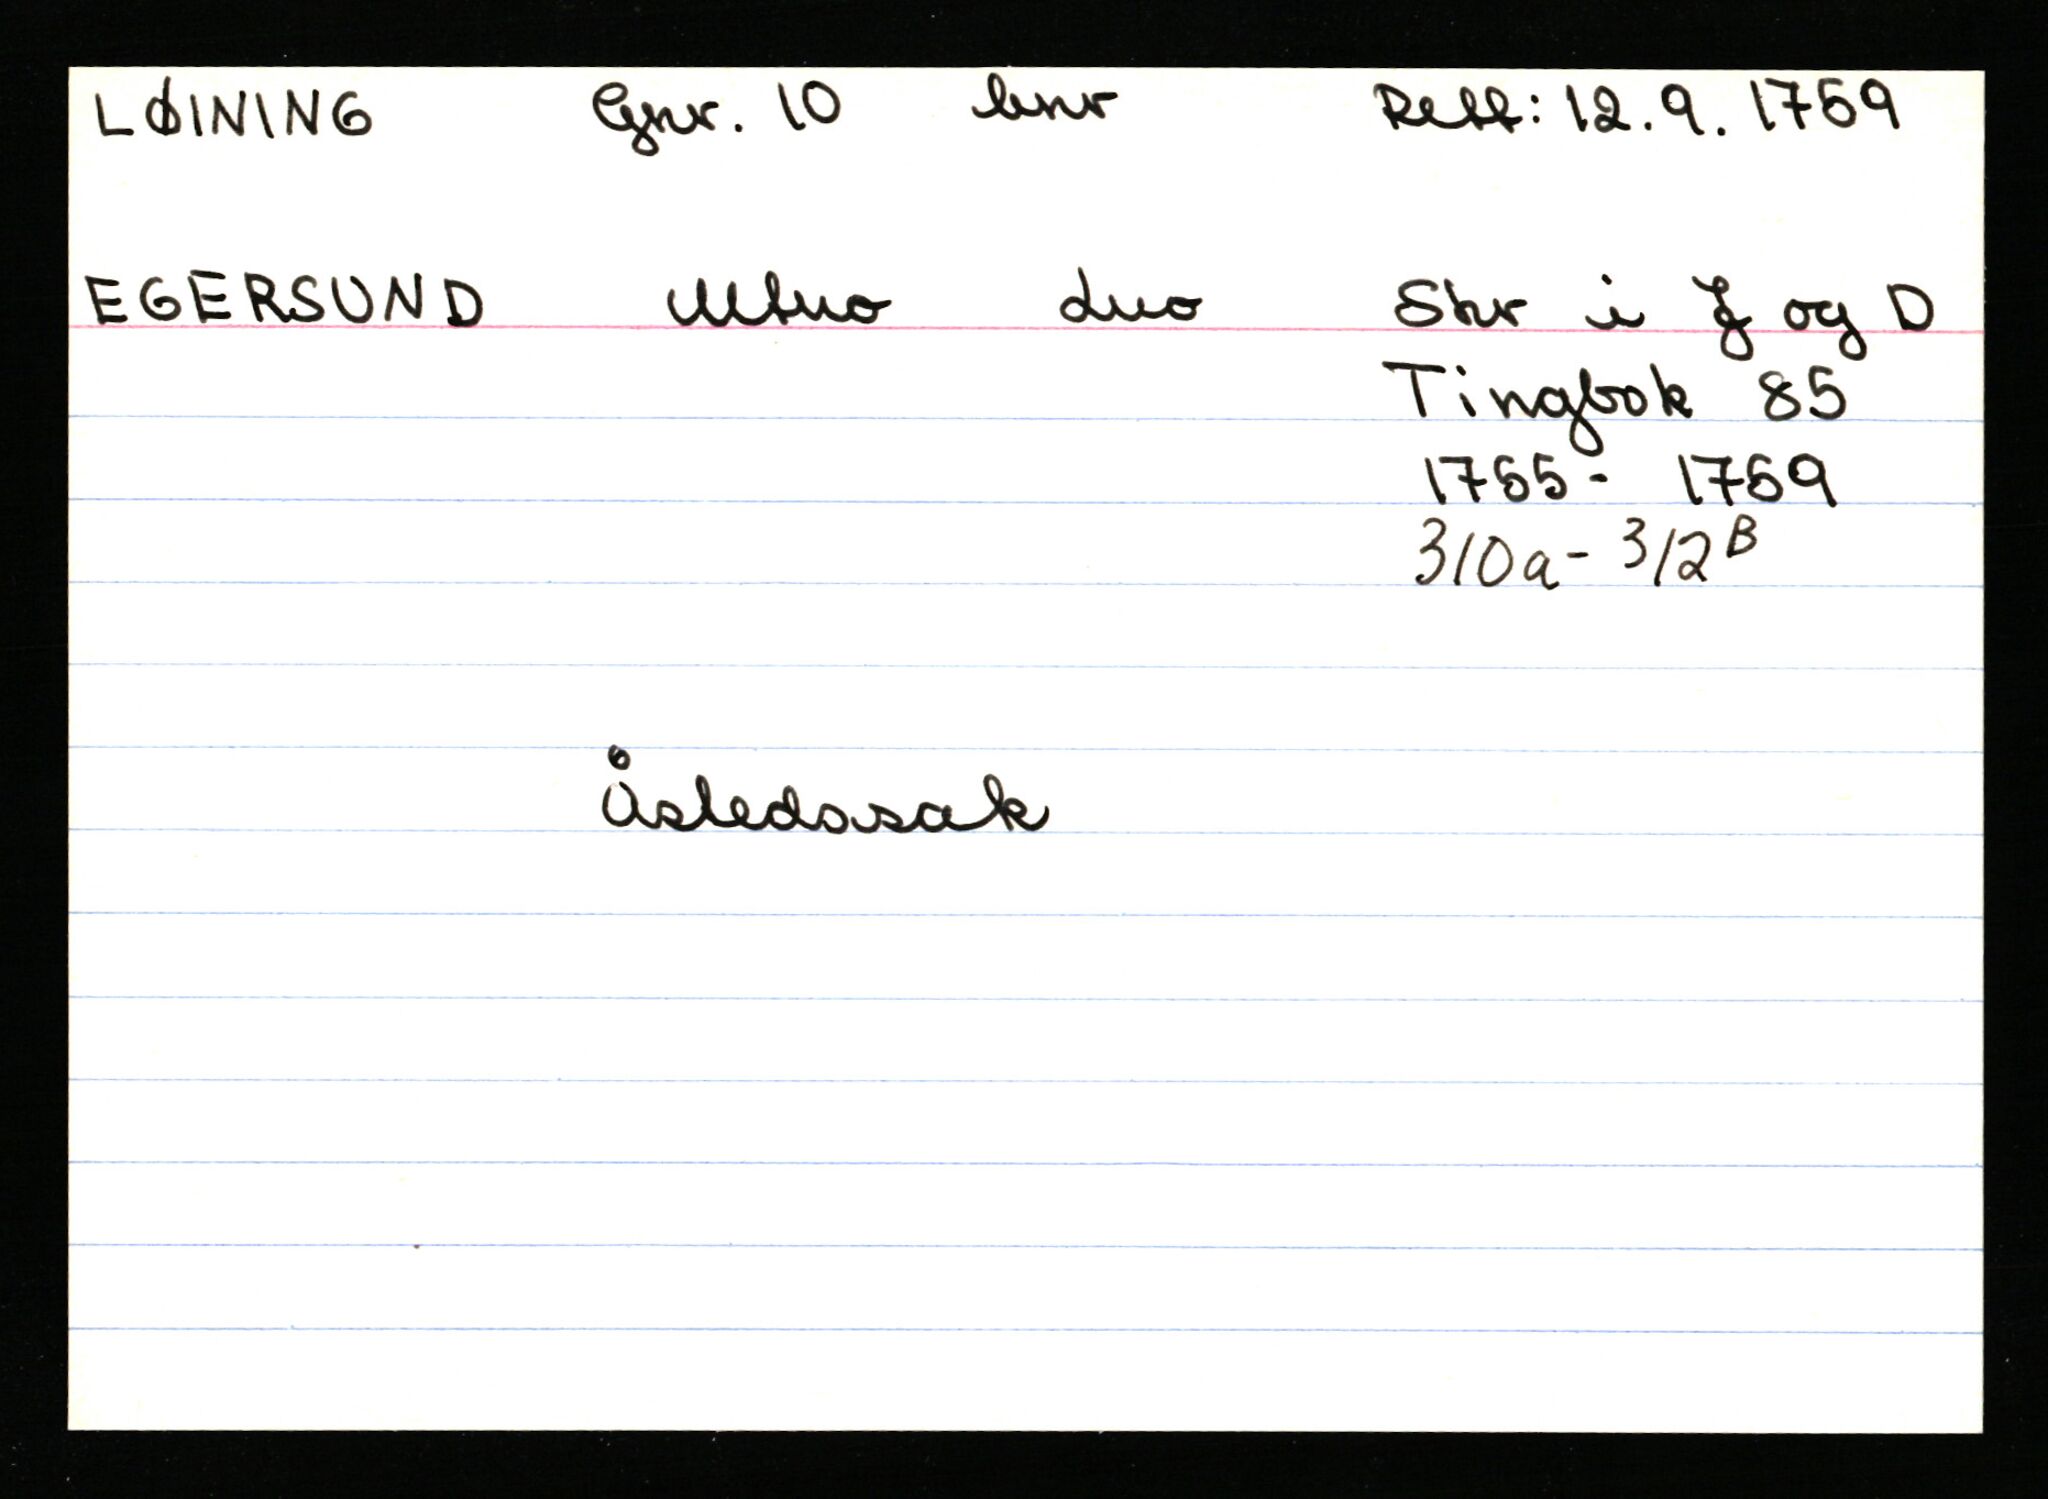 LØINING Gnr. 10 bnr Rett: 12.9.1759
EGERSUND Mtuo duo Skr i J og D
Tingbok 85
1755 - 1759
310a - 312B
Åstedssak